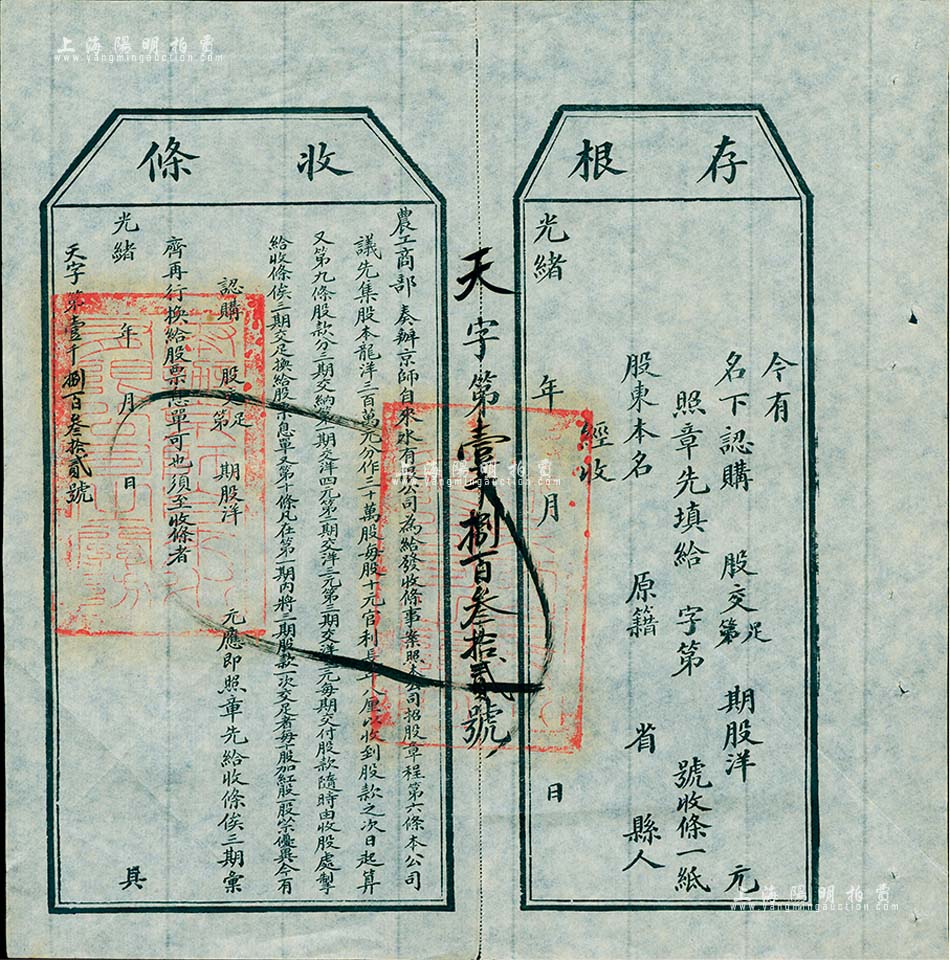 上海陽明拍賣
www.yangmingauction.com
存根
今有
名下認購 股交第足 期股洋 元
照章先填給 字第 號收條一紙
股東本名 原籍 省 縣人
經收
光緒 年 月 日
天字第壹千捌百叁拾貳號
收條
農工商部 奏辦京師自來水有限公司為給發收條事案照本公司招股章程第六條本公司
議先集股本龍洋三百萬元分作三十萬股每股十元官利長年八厘以收到股款之次日起算
又第九條股款分三期交納第一期交洋四元第二期交洋三元第三期交洋三元每期交付股款隨時由收股處掣
給收條俟三期交足換給股票息單又第十條凡在第一期內將三期股款一次交足者每十股加紅股一股以示優異今有
認購 股交第足 期股洋 元應即照章先給收條俟三期彙
齊再行換給股票息單可也須至收條者
光緒 年 月 日 具
天字第壹千捌百叁拾貳號
上海陽明拍賣
www.yangmingauction.com
上海陽明拍賣
www.yangmingauction.com